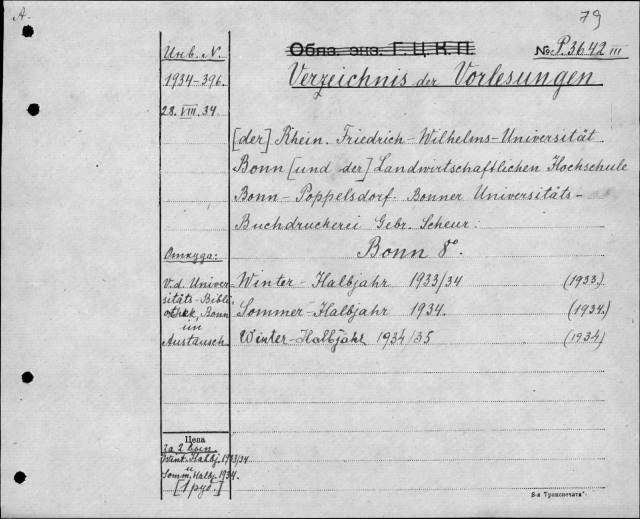 A.
79
Инв. N.
Обяз. экз. Г.Ц.К.П.
№ P.3642 III
1934-396.
Verzeichnis der Vorlesungen
28. VIII. 34
[der] Rhein. Friedrich-Wilhelms-Universität
Bonn [und der] Landwirtschaftlichen Hochschule
Bonn-Poppelsdorf. Bonner Universitäts-
Buchdruckerei Gebr. Scheur.
Bonn 8°.
Откуда:
V. d. Univer-
sitäts-Biblio-
Bonn
im
Austausch.
Winter-Halbjahr 1933/34 (1933.)
Sommer-Halbjahr 1934. (1934.)
Winter-Halbjahr 1934/35 (1934)
Цена
за 2 вып.
Wint. Halbj. 1933/34
и
Somm. Halbj. 1934.
[1 руб.]
8-я Транспечать